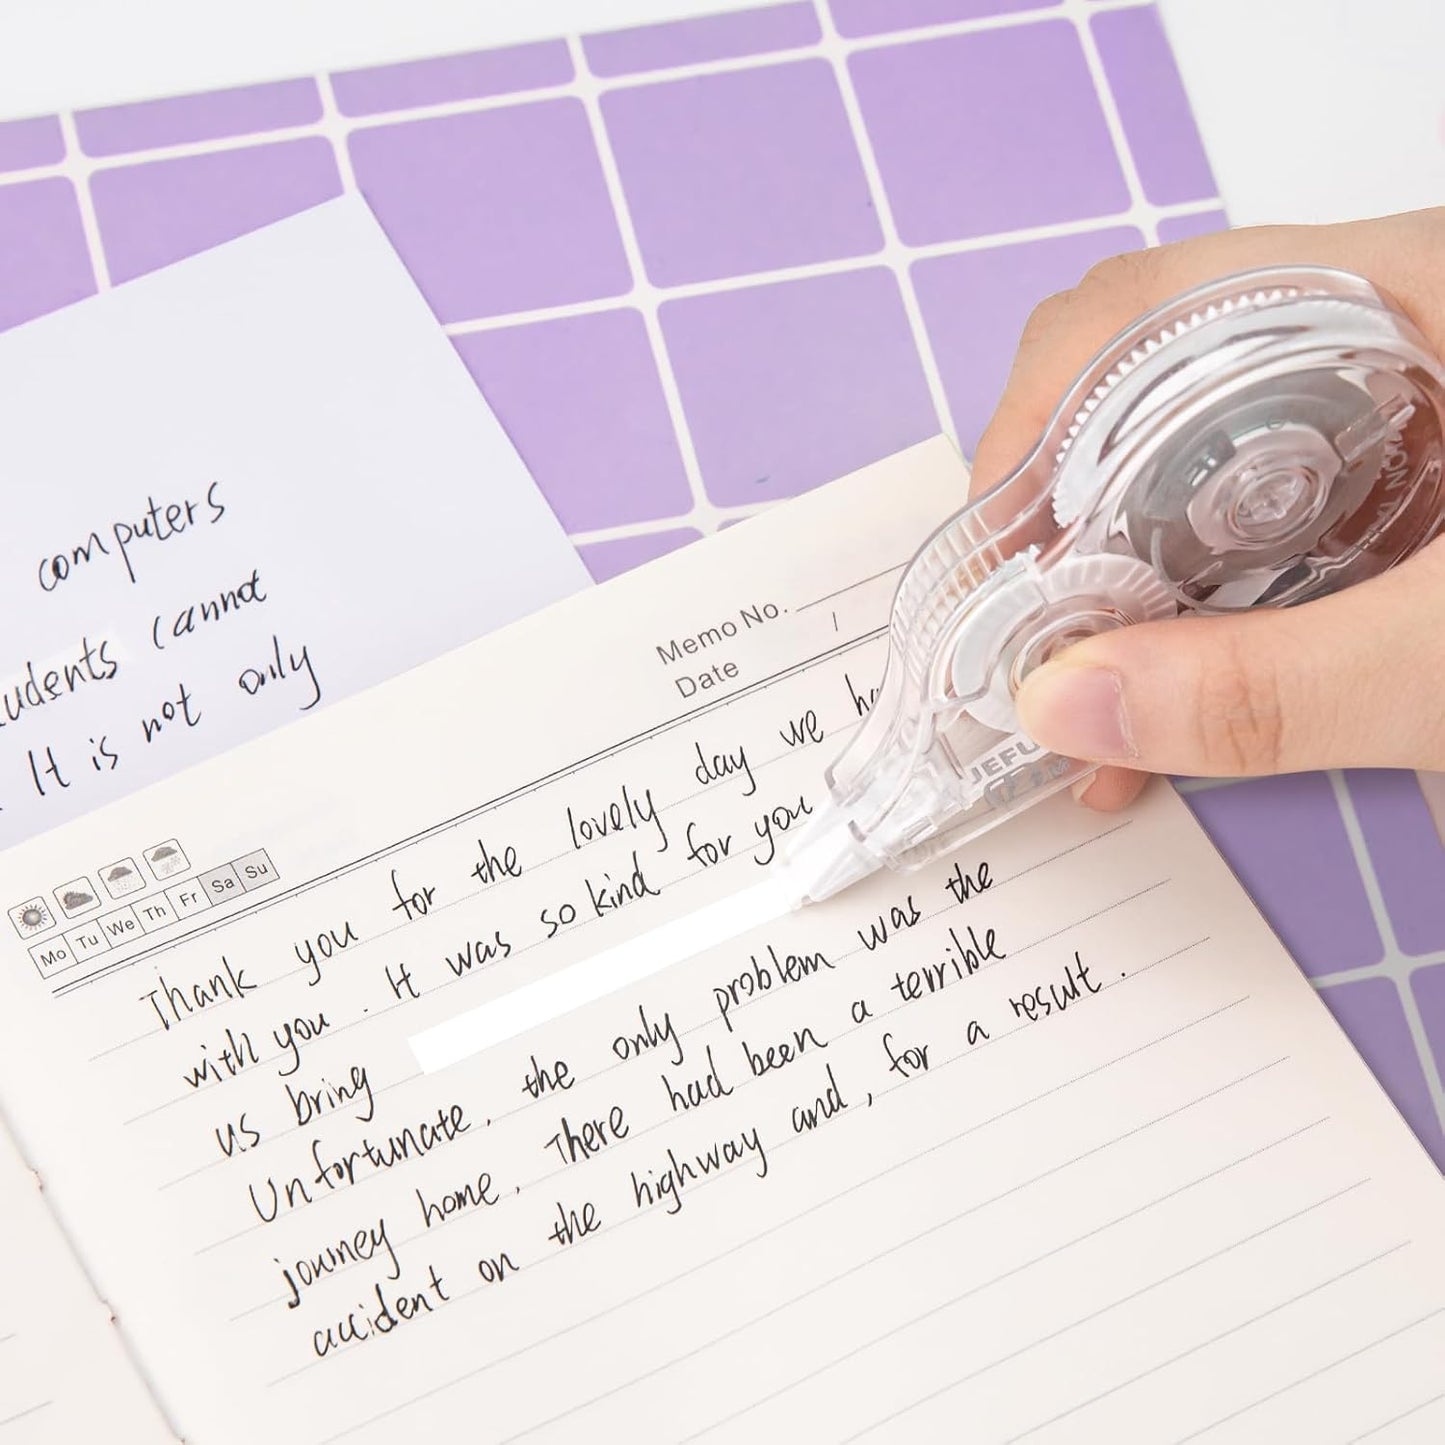 computers
udents cannot
It is not only
Memo No.
Date /
Mo Tu We Th Fr Sa Su
Thank you for the lovely day we ha
with you. It was so kind for you
us bring
Unfortunate, the only problem was the
journey home. There had been a terrible
accident on the highway and, for a result.
JEFU